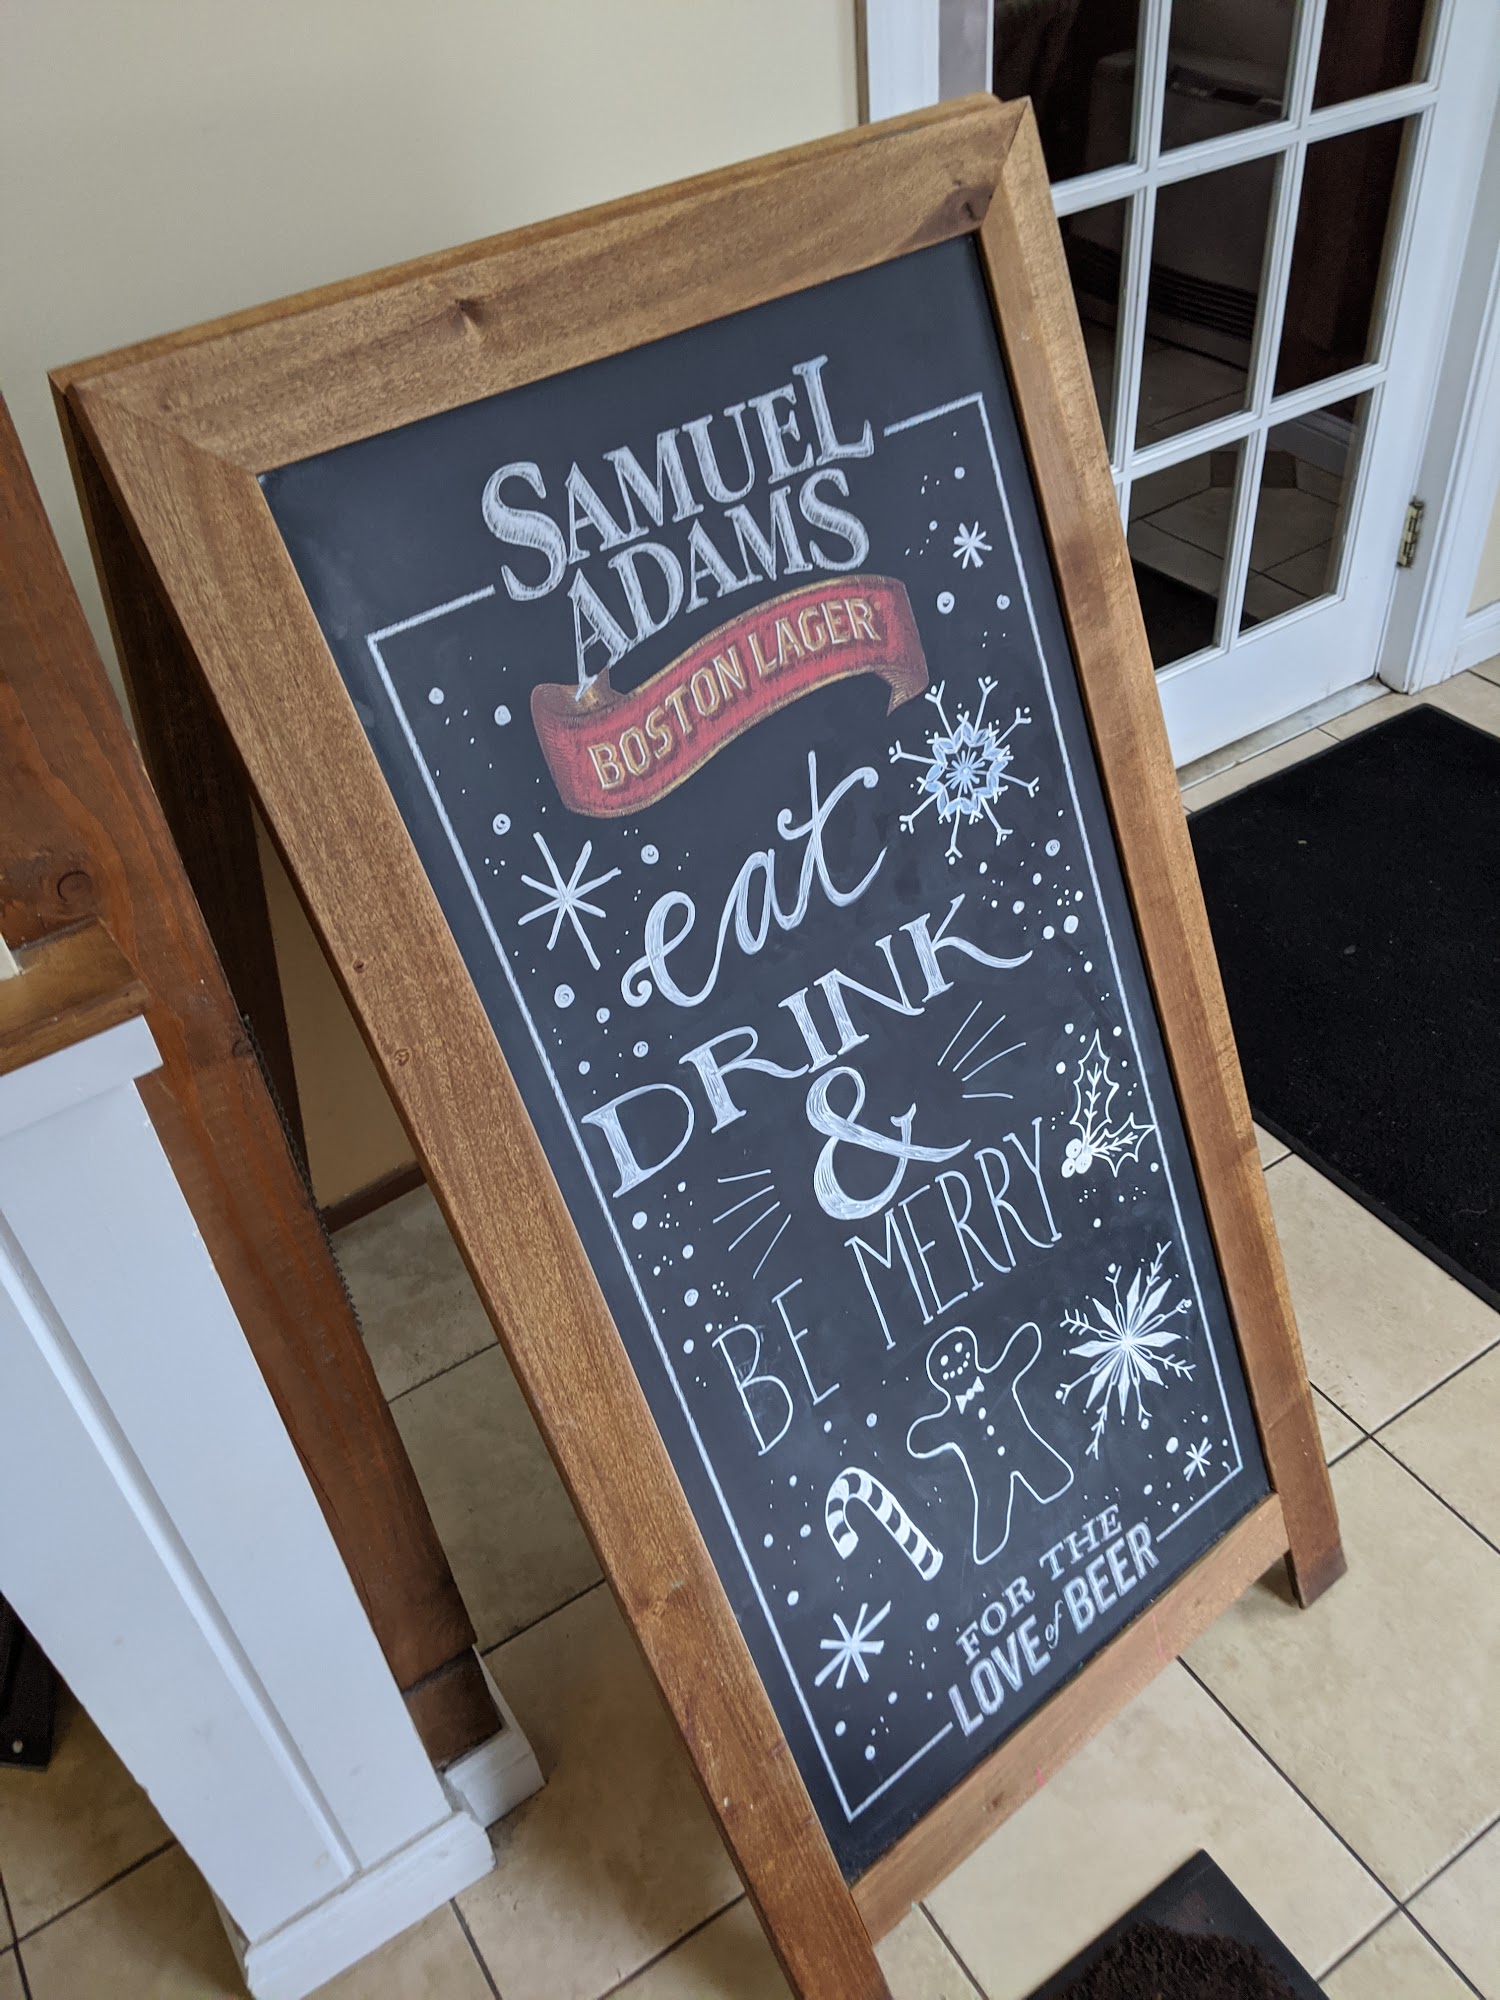 SAMUEL
ADAMS
BOSTON LAGER
eat
DRINK
&
BE MERRY
FOR THE
LOVE of BEER